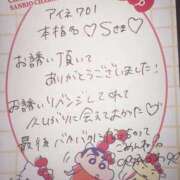 SANRIO CHARAC
アイネ701
本指名♡Sさま♡
お誘い頂いて
ありがとうございました!
お誘いリベンジしてくれて
久しぶりに会えてよかった♡
最後バタバタしちゃって
ごめんね